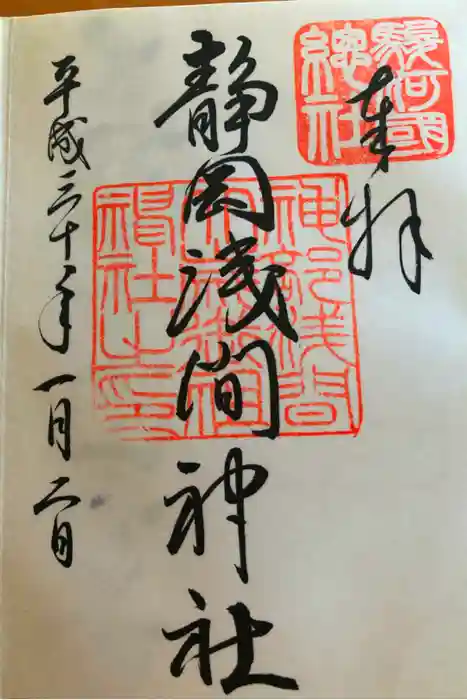 奉拝
駿河國
總社
静岡浅間神社
神部浅間
大歳御祖
神社之印
平成三十年一月二日